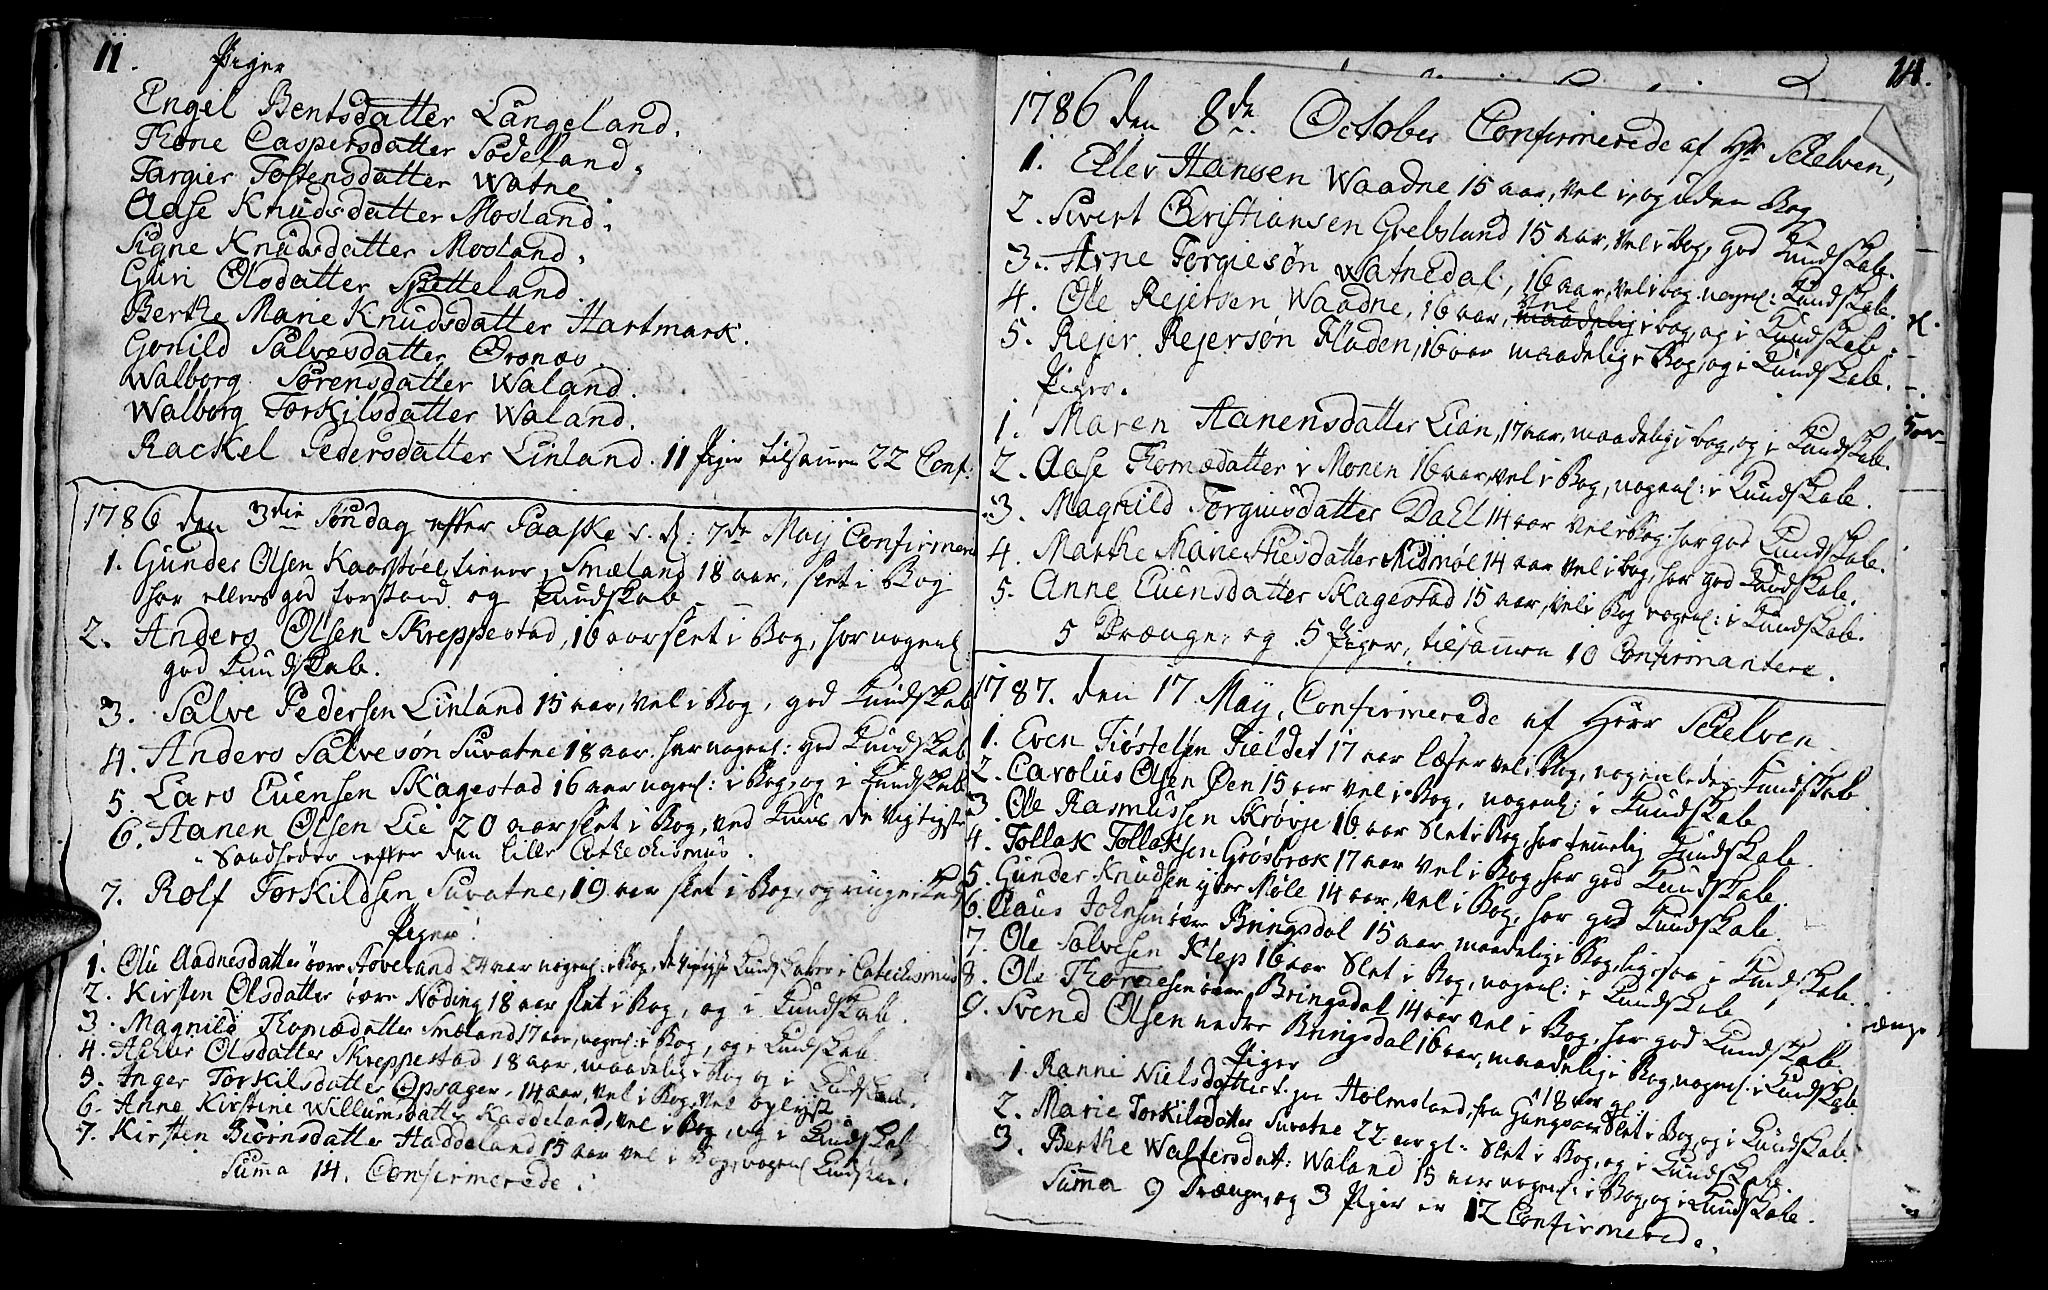 11.
Piger
Engel Bentsdatter Langeland.
Thone Caspersdatter Sodeland.
Targier Tostensdatter Watne
Aase Knudsdatter Mosland.
Signe Knudsdatter Mosland.
Guri Olsdatter Spetteland.
Berthe Marie Knudsdatter Hartmark.
Gonild Salvesdatter Øronæs.
Walborg Sørensdatter Waland.
Walborg Torkilsdatter Waland.
Rackel Pedersdatter Linland. 11 Piger tilsamen 22 Conf:
1786 den 3die Søndag efter Paaske s. d: 7de Maij Confirmere
1. Gunder Olsen Kaarstøel tiener Smæland 18 aar, slet i Bog
har ellers god forstand og Kundskab
2. Anders Olsen Skreppestad, 16 aar slet i Bog, har nogenl:
god Kundskab.
3. Salve Pedersen Linland 15 aar, vel i Bog, god Kundskab
4. Anders Salvesøn Suvatne 18 aar. har nogenl: god Kundskab
5. Lars Evensen Skagestad 16 aar nogenl: i Bog, og i Kundskab
6. Aanen Olsen Lie 20 aar slet i Bog, ved Kuns de vigtigste
Sandheder efter den lille Cathechismus.
7. Rolf Torkildsen Suvatne, 19 aar slet i Bog, og ringe Kunds
Piger.
1. Oliv Aadnesdatter øvre Aaveland 24 aar nogenl: i Bog, de vigtigste Kundskaber i Catechismus
2. Kirsten Olsdatter øvre Nøding 18 aar slet i Bog, og i Kundskab.
3. Magnild Thomædatter Smæland 17 aar, nogenl: i Bog, og i Kundskab.
4. Olsdatter Skreppestad 18 aar, maadelig i Bog og i Kundskab.
5. Inger Torkilsdatter Opsager, 14 aar, vel i Bog, vel oplyst
6. Anne Kirstine Willumsdatter Kaddeland, vel i Bog, og i Kundskab
7. Kirsten Biørnsdatter Haddeland 15 aar vel i Bog, nogenl Kundskab.
Suma 14. Confirmerede.
14.
1786 den 8de October Confirmerede af Hr Scielven,
1. Eilev Hansen Waadne 15 aar, vel i, og uden Bog
2. Sivert Christiansen Grebslund 15 aar, vel i bog, god Kundskab.
3. Arne Torgiesøn Watnedal, 16 aar, vel i bog nogenl: Kundskab.
4. Ole Rejersen Waadne, 16 aar, maadelig vel i bog, og i Kundskab.
5. Rejer Rejersøn Fladen, 16 aar maadelig i Bog, og i Kundskab.
Piger.
1. Maren Aanensdatter Lian, 17 aar, maadelig i bog, og i Kundskab.
2. Aase Thomædatter i Monen 16 aar, vel i Bog, nogenl: i Kundskab.
3. Magnild Torgiusdatter Dael 14 aar vel i Bog. har god Kundskab.
4. Marthe Marie Thiesdatter Midmøl 14 aar vel i bog, har god Kundskab.
5. Anne Evensdatter Skagestad 15 aar, vel i Bog nogenl: i Kundskab.
5 Drænge, og 5 Piger, tilsamen 10 Confirmantere.
1787. den 17 Maij, Confirmerede af Herr Scielven
1. Even Tiøstelsen Fieldet 17 aar læser vel i Bog, nogenledes Kundskab
2. Carolus Olsen Øen 15 aar vel i Bog, nogenl: i Kundskab.
3. Ole Rasmussen Skrøvje 16 aar slet i Bog, har temelig Kundskab
4. Tollak Tollaksen Grøsbrok 17 aar vel i Bog, har god Kundskab.
5. Gunder Knudsen ytre Møle 14 aar, vel i Bog, har god Kundskab.
6. Claus Johnsen øvre Bringsdal 15 aar maadelig i Bog, ligesaa i Kundskab.
7. Ole Salvesen Klep 16 aar Slet i Bog, nogenl: i Kundskab.
8. Ole Thoresen øvre Bringsdal 14 aar vel i Bog, har god Kundskab.
9. Svend Olsen nedre Bringsdal 16 aar, maadelig i Bog, nogenl. i Kundskab.
Piger
1. Ranni Nielsdatter Holmsland, fra 18 aar gl: Slet i Bog, og i Kundskab.
2. Marie Torkilsdatter Suvatne 22 aar gl: Slet i Bog, og i Kundskab.
3. Berthe Waltersdat: Waland 15 aar nogenl: i Bog, og i Kundskab.
Suma 9 Drænge, og 3 Piger er 12 Confirmerede.